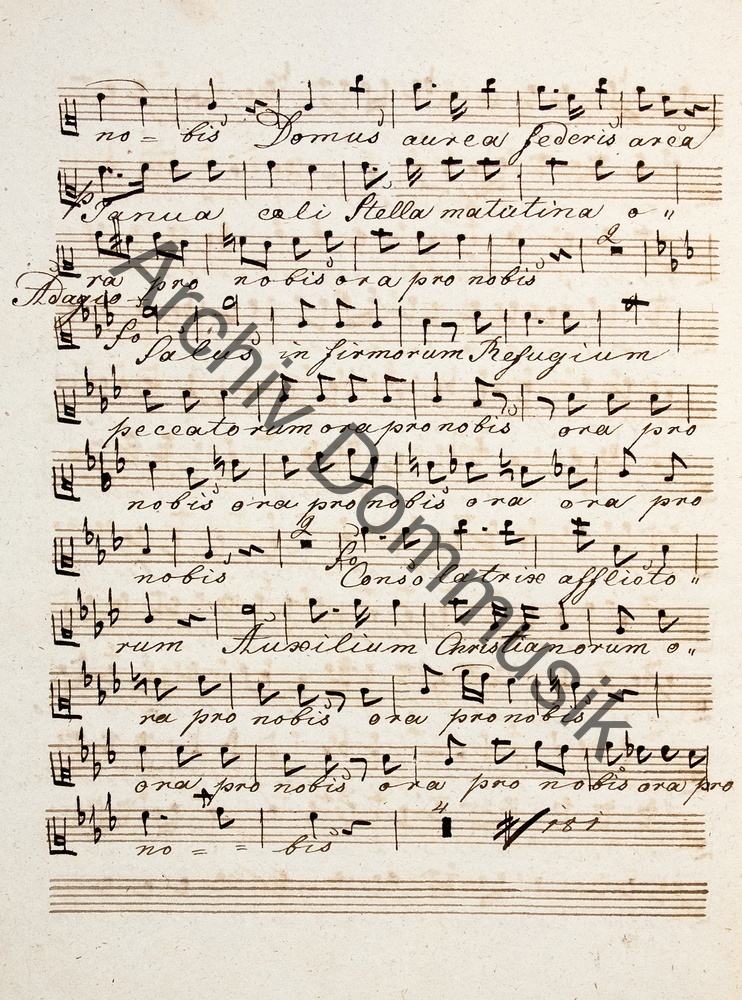 no = bis Domus aurea federis arca
p Janua celi Stella matutina o "
ra pro nobis ora pro nobis 2
Adagio
fo Salus in firmorum Refugium
peccatorum ora pro nobis ora pro
nobis ora pro nobis ora ora pro
nobis 2 fo Consolatrix afflicto "
rum Auxilium Christianorum o "
ra pro nobis ora pro nobis
ora pro nobis ora pro nobis ora pro
no = = bis 4
Archiv Dommusik